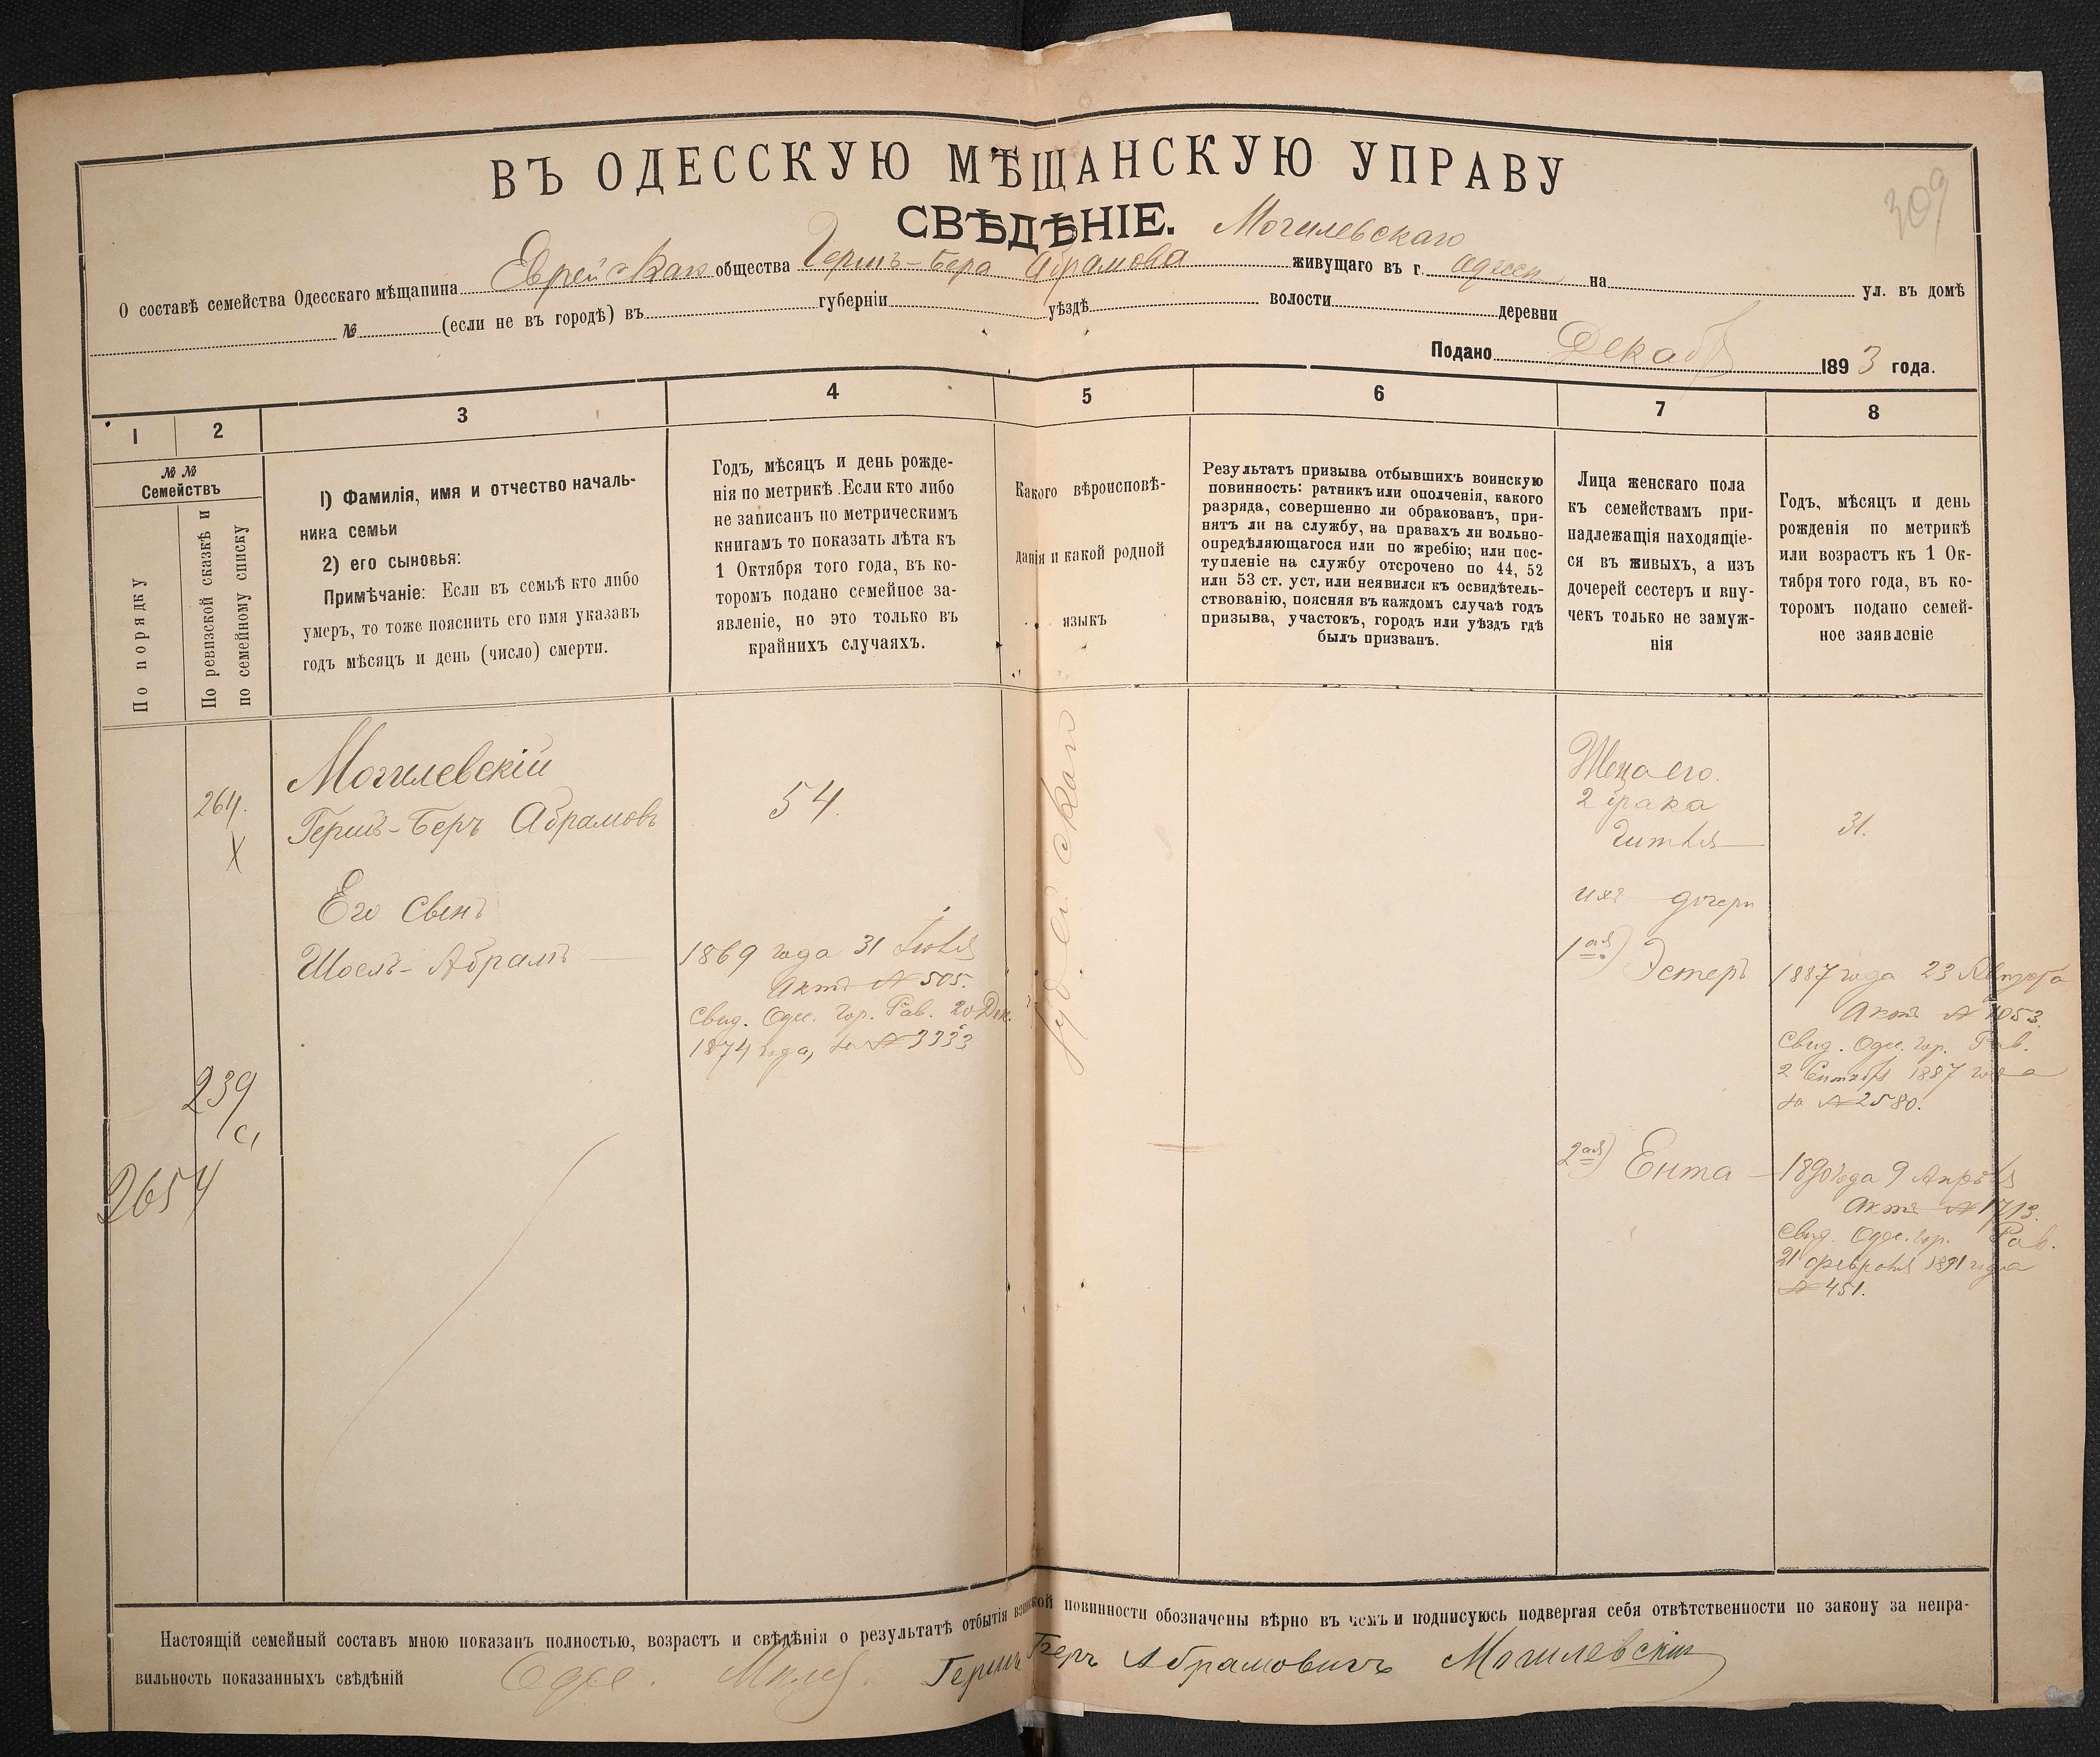 309
ВЪ ОДЕССКУЮ МѢЩАНСКУЮ УПРАВУ
СВѢДѢНІЕ.
Могилевскаго
О составѣ семейства Одесскаго мѣщанина Еврейскаго общества Герш-Бера Абрамова живущаго въ г. Одессѣ на ул. въ домѣ
№ (если не въ городѣ) въ губерніи уѣздѣ волости деревни
Подано Декабр 1893 года.
1 2 3 4 5 6 7 8
№ №
Семействъ
По порядку
По ревизской сказкѣ и
по семейному списку
1) Фамилія, имя и отчество началь-
ника семьи
2) его сыновья:
Примѣчаніе: Если въ семьѣ кто либо
умеръ, то тоже пояснить его имя указавъ
годъ мѣсяцъ и день (число) смерти.
Годъ, мѣсяцъ и день рожде-
нія по метрикѣ. Если кто либо
не записанъ по метрическимъ
книгамъ то показать лѣта къ
1 Октября того года, въ ко-
торомъ подано семейное за-
явленіе, но это только въ
крайнихъ случаяхъ.
Какого вѣроисповѣ-
данія и какой родной
языкъ
Результатъ призыва отбывшихъ воинскую
повинность: ратникъ или ополченія, какого
разряда, совершенно ли обракованъ, при-
нятъ ли на службу, на правахъ ли вольно-
опредѣляющагося или по жребію; или пос-
тупленіе на службу отсрочено по 44, 52
или 53 ст. уст. или неявился къ освидѣтель-
ствованію, поясняя въ каждомъ случаѣ годъ
призыва, участокъ, городъ или уѣздъ гдѣ
былъ призванъ.
Лица женскаго пола
къ семействамъ при-
надлежащія находящіе-
ся въ живыхъ, а изъ
дочерей сестеръ и вну-
чекъ только не замуж-
нія
Годъ, мѣсяцъ и день
рожденія по метрикѣ
или возрастъ къ 1 Ок-
тября того года, въ ко-
торомъ подано семей-
ное заявленіе
264.
X
239
2654
Могилевскій
Герш-Беръ Абрамовъ
Его сынъ
Шоель-Абрамъ
54.
1869 года 31 Іюля
Актъ № 505.
Свид. Одес. Гор. Рав. 20 Дек.
1874 года, за № 3333
Іудейскаго
Жена его
2 брака
Гитля
ихъ дочери
1ая) Эстеръ
2ая) Ента
31.
1887 года 23 Августа
Актъ № 1053.
Свид. Одес. Гор. Рав.
2 Сентября 1887 года
за № 2580.
1890 года 9 Апрѣля
Актъ № 1713.
Свид. Одес. Гор. Рав.
21 Февраля 1891 года
№ 451.
Настоящій семейный составъ мною показанъ полностью, возрастъ и свѣдѣнія о результатѣ отбытія воинской повинности обозначены вѣрно въ чемъ и подписуюсь подвергая себя отвѣтственности по закону за непра-
вильность показанныхъ свѣдѣній Одес. Герш Беръ Абрамовичъ Могилевскій